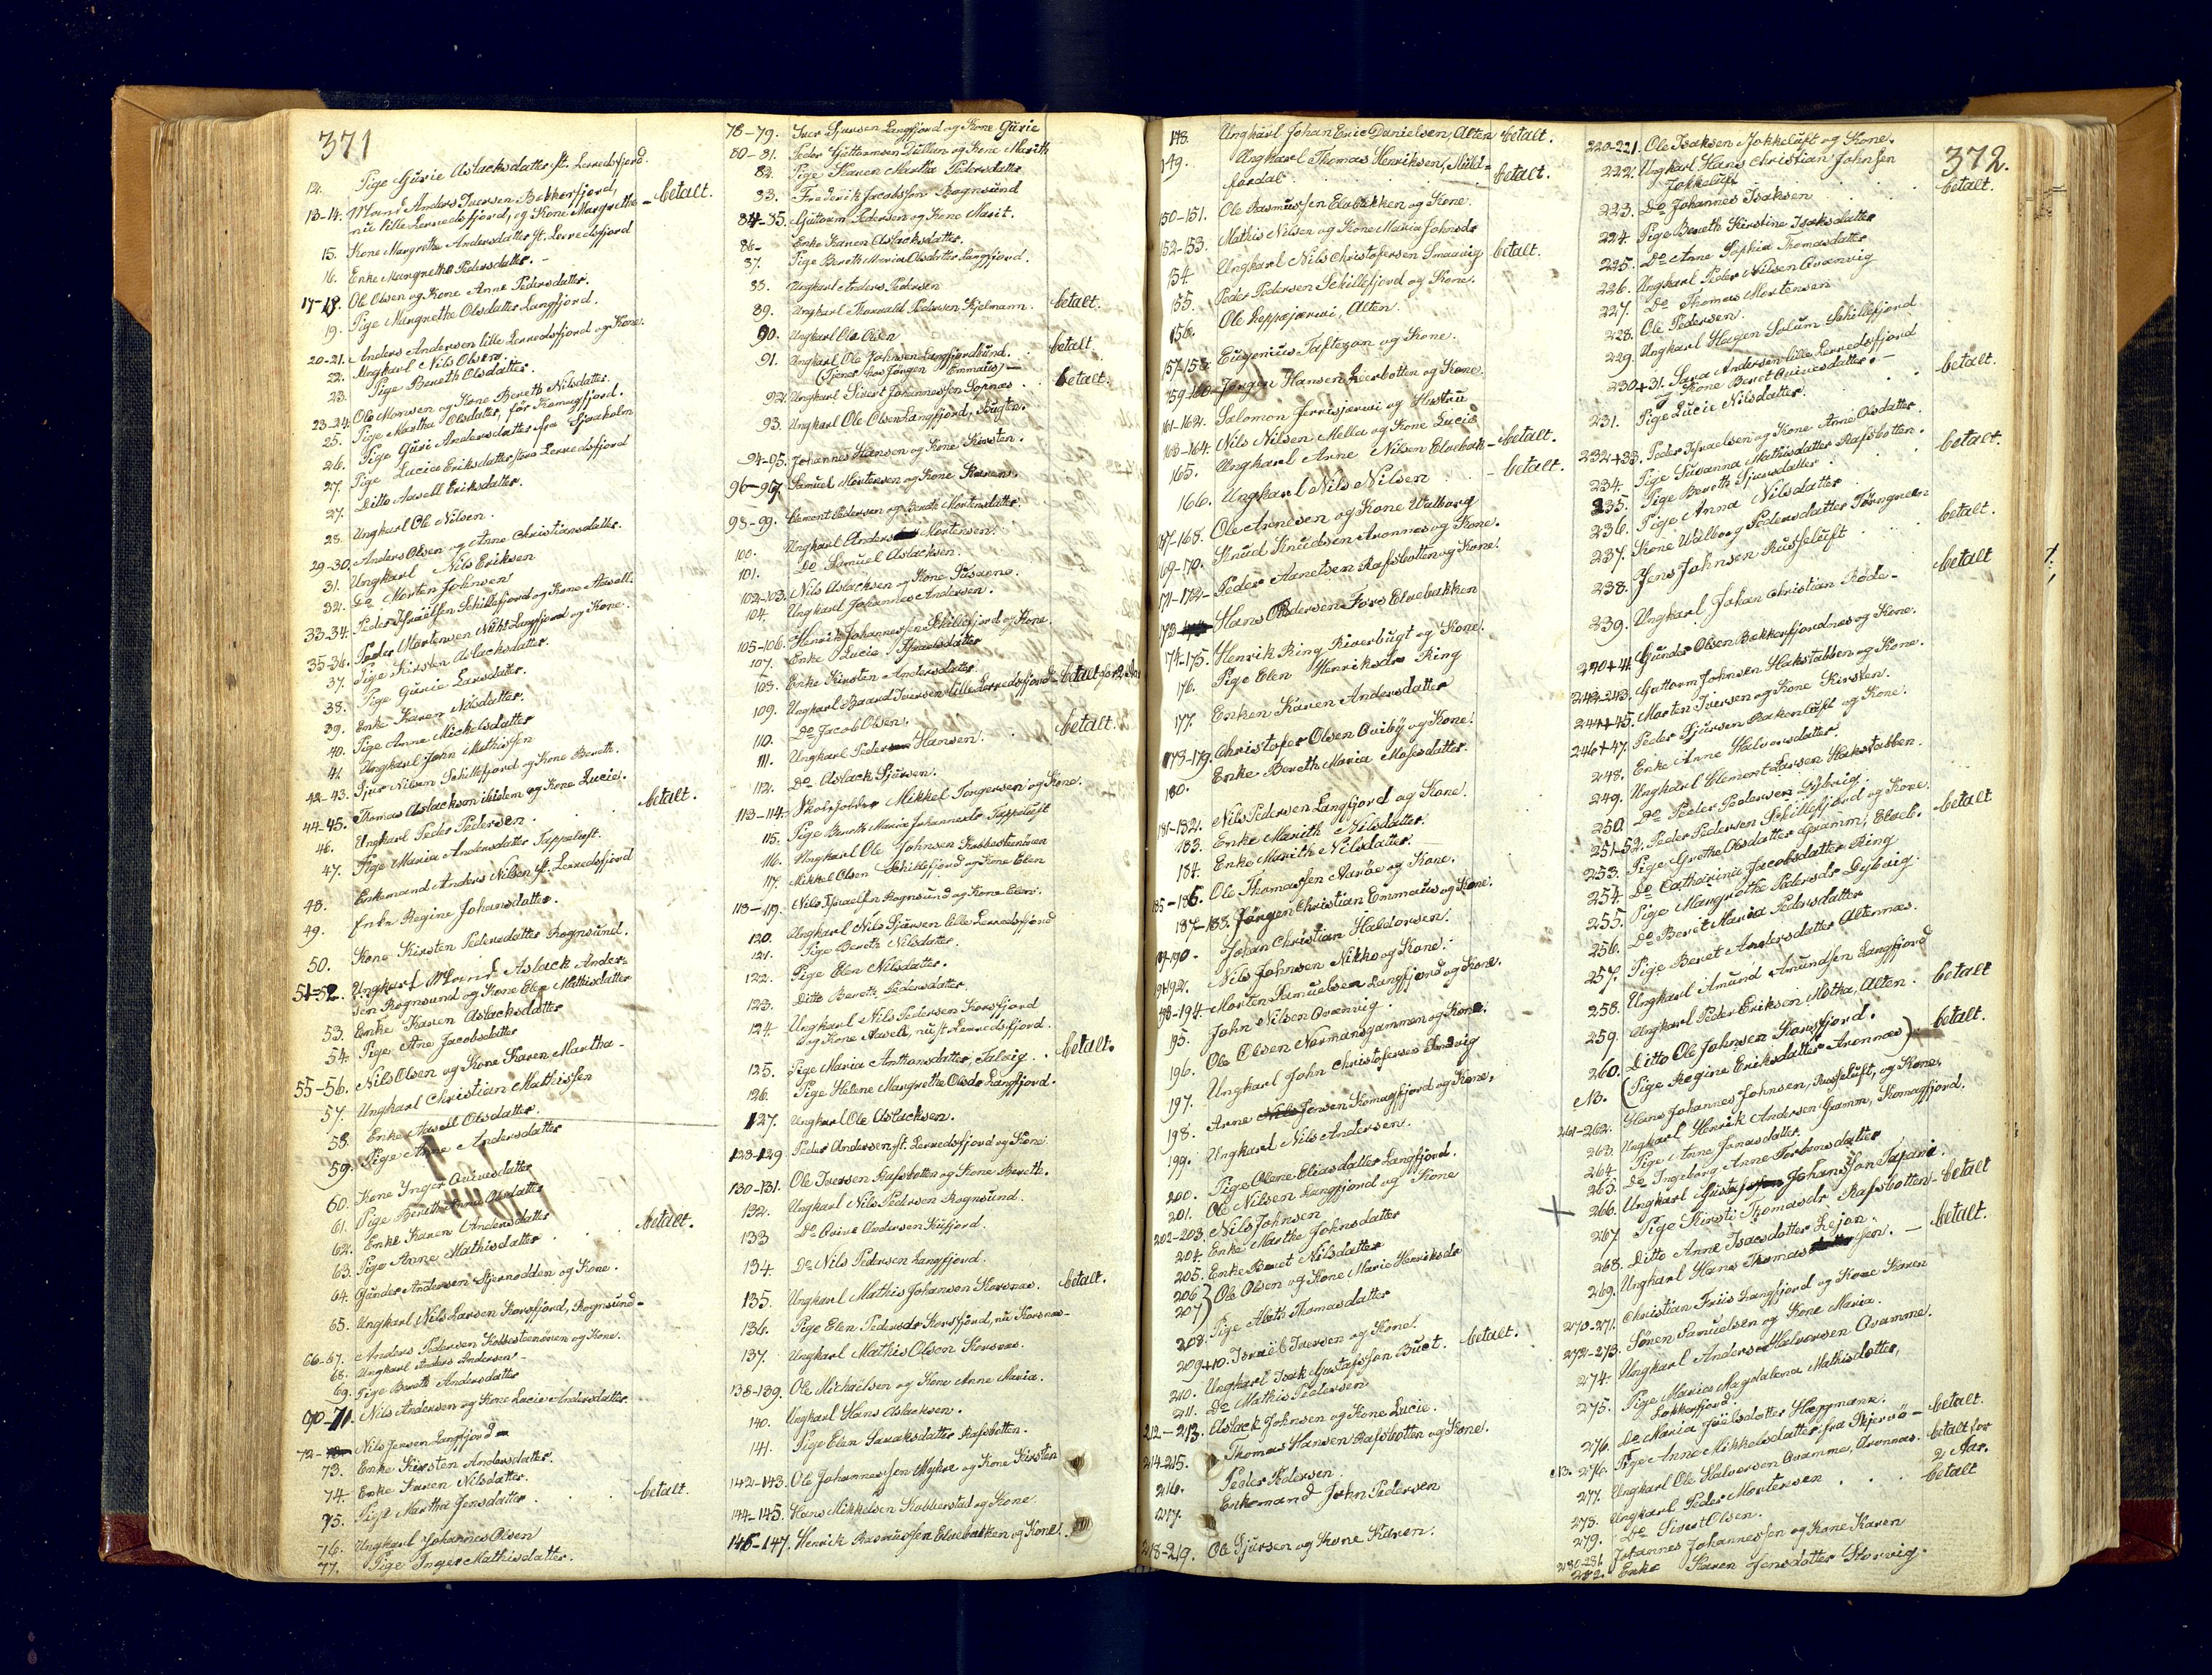 371
12. Pige Gurie Aslacksdatter st. Lerredsfjord.
13-14. Mand Anders Iversen Bekkerfjord,
nu lille Lerredsfjord, og Kone Margrethe - betalt.
15. Kone Margrethe Andersdatter st. Lerredsfjord
16. Enke Margrethe Pedersdatter. -
17-18. Ole Olsen og Kone Anne Pedersdatter.
19. Pige Margrethe Olsdatter Langfjord.
20-21. Anders Andersen lille Lerredsfjord og Kone.
22. Ungkarl Nils Olsen.
23. Pige Bereth Olsdatter.
23-24. Ole Monsen og Kone Bereth Nilsdatter.
25. Pige Martha Olsdatter, før Komagfjord.
26. Pige Guri Andersdatter fra Stjraholm
27. Pige Lucie Eriksdatter store Lerredsfjord
27. Ditto Aasell Eriksdatter.
28. Ungkarl Ole Nilsen.
29-30. Anders Olsen og Anne Christiansdatter.
31. Ungkarl Nils Eriksen
32. Do Morten Johnsen
33-34. Peder Israelsen Schillefjord og Kone Aasell.
35-36. Peder Mortensen Nikt Langfjord og Kone.
37. Pige Kirsten Aslacksdatter.
38. Pige Gurie Larsdatter.
39. Enke Karen Nilsdatter.
40. Pige Anne Mickelsdatter
41. Ungkarl John Mathissen
42-43. Sjur Nilsen Schillefjord og Kone Bereth.
44-45. Thomas Aslacksen ibidem og Kone Lucie.
46. Ungkarl Peder Pedersen. . . betalt.
47. Pige Maria Andersdatter Tappeluft.
48. Enkemand Anders Nilsen st. Lerredsfjord
49. Enke Regine Johansdatter.
50. Kone Kirsten Pedersdatter Rognsund.
51-52. Ungkarl Mand Aslack Ander-
sen Rognsund og Kone Elen Mathisdatter
53. Enke Karen Aslacksdatter
54. Pige Ane Jacobsdatter
55-56. Nils Olsen og Kone Karen Martha -
57. Ungkarl Christian Mathissen
58. Enke Aasell Olsdatter.
59. Pige Anne Andersdatter
60. Kone Inger Qvivesdatter
61. Pige Bereth Anne Olsdatter
62. Enke Karen Andersdatter
63. Pige Anne Mathisdatter . . betalt.
64. Gunder Andersen Stjernodden og Kone.
65. Ungkarl Nils Larsen Korsfjord, Rognsund -
66-67. Anders Pedersen Kobbesteenøren og Kone.
68. Ungkarl Anders Andersen -
69. Pige Bereth Andersdatter
70-71. Nils Andersen og Kone Lucie Andersdatter.
72- Nils Jensen Langfjord
73. Enke Kirsten Andersdatter.
74. Enke Karen Nilsdatter.
75. Pige Martha Jensdatter . . betalt.
76. Ungkarl Johannes Olsen
77. Pige Inger Mathisdatter.
78-79. Iver Sjursen Langfjord og Kone Gurie
80-81. Peder Guttormsen Dullan og Kone Marith
82. Pige Karen Martha Pedersdatter
83. Frederik Jacobssen Rognsund
84-85. Guttorm Pedersen og Kone Marit.
86- Enke Karen Aslacksdatter.
87. Pige Bereth Maria Olsdatter Langfjord.
88. Ungkarl Anders Pedersen
89. Ungkarl Thorvald Pedersen Hjelmann. betalt.
90. Ungkarl Ole Olsen
91. Ungkarl Ole Johnsen Langfjordbund. . betalt.
(Tjener hos Jørgen Emmaus) -
92. Ungkarl Sivert Johannessen Sopnæs . . betalt.
93. Ungkarl Ole Olsen Langfjord, Bugten.
94-95. Johannes Hansen og Kone Kirsten.
96-97. Samuel Mortensen og Kone Karen.
98-99. Clement Pedersen og Bereth Mortensdatter.
100. Ungkarl Anders Mortensen.
101. Do Samuel Aslacksen.
102-103. Nils Aslacksen og Kone Susanne.
104. Ungkarl Johannes Andersen.
105-106. Henrik Johannessen Schillefjord og Kone.
107. Enke Lucie Israelsdatter
108. Enke Kirsten Andersdatter.
109. Ungkarl Baard Iversen lille Lerredsfjord - betalt for 2 Aar
110. Do Jacob Olsen.
111. Ungkarl Peder Hansen. . betalt.
112. Do Aslack Sjursen.
113-114. Skolejobber Mikkel Torgersen og Kone.
115. Pige Bereth Maria Johannesdr Tappeluft
116. Ungkarl Ole Johnsen Kobbesteenøren
117. Mikkel Olsen Schillefjord og Kone Elen
118-119. Nils Israelsen Rognsund og Kone Elen.
120. Ungkarl Nils Sjursen lille Lerredsfjord
121. Pige Bereth Nilsdatter.
122. Pige Elen Nilsdatter.
123. Ditto Bereth Pedersdatter
124. Ungkarl Nils Pedersen Korsfjord
og Kone Aasell, nu st. Lerredsfjord.
125. Pige Maria Anthonsdatter, Talvig. . betalt.
126. Pige Helene Margrethe Olsdr Langfjord.
127. Ungkarl Ole Aslacksen.
128-129. Peder Andersen st. Lerredsfjord og Kone.
130-131. Ole Iversen Rafsbotten og Kone Bereth.
132. Ungkarl Nils Pedersen Rognsund.
133 Do Qvive Andersen Kufjord.
134. Do Nils Pedersen Langfjord.
135. Ungkarl Mathis Johansen Korsnæs. betalt.
136. Pige Elen Pedersdr Korsfjord, nu Korsnæs -
137. Ungkarl Mathis Olsen Korsnæs.
138-139. Ole Michaelsen og Kone Anne Maria.
140. Ungkarl Hans Aslacksen.
141. Pige Elen Isaaksdatter Rafsbotten.
142-143. Ole Johannessen Mykre og Kone Kirsten
144-145. Hans Mikkelsen Kobberstad og Kone
146-147. Henrik Rasmussen Elvebakken og Kone.
148. Ungkarl Johan Eric Danielsen, Alten betalt.
149. Ungkarl Thomas Henriksen, Guld-
fordal . . . betalt.
150-151. Ole Rasmussen Elvebakken og Kone.
152-153. Mathis Nilsen og Kone Maria Johnsdr
154. Ungkarl Nils Christofersen Smaavig betalt.
155. Peder Pedersen Schillefjord og Kone.
156. Ole Keppejærvi, Alten.
157-158. Eugenius Taftezon og Kone.
159-160 Jørgen Hansen Leerbotten og Kone.
161-162. Salomon Jerrisjærvi og Hustru
163-164. Nils Nilsen Mella og Kone Lucie
165. Ungkarl Arne Nilsen Elvebak - betalt.
166. Ungkarl Nils Nilsen . . - betalt.
167-168. Ole Arnesen og Kone Walborg
169-170. Knud Knudsen Aronnæs og Kone.
171-172- Peder Arnetsen Rafsbotten og Kone.
173 Hans Pedersen Fors Elvebakken
174-175. Henrik Ring Riverbugt og Kone.
176. Pige Elen Henriksdr Ring
177. Enken Karen Andersdatter
178-179. Christofer Olsen Qviby og Kone.
180. Enke Bereth Maria Mosesdatter.
181-182. Nils Pedersen Langfjord og Kone.
183. Enke Marith Nilsdatter.
184. Enke Marith Nilsdatter.
185-186. Ole Thomassen Aarøe og Kone.
187-188. Jørgen Christian Emmaus og Kone.
189-190 - Johan Christian Haldorsen.
191-92. Nils Johnsen Nikko og Kone.
193-194 Morten Samuelsen Langfjord og Kone.
195. John Nilsen Qvænvig.
196. Ole Olsen Normansgammen og Kone.
197. Ungkarl John Christofersen Smavig
198. Arne Jensen Komagfjord og Kone.
199. Ungkarl Nils Andersen.
200. Pige Oliane Eliasdatter Langfjord.
201. Ole Nilsen Langfjord og Kone
202-203. Nils Johnsen
204. Enke Marthe Johnsdatter
205. Enke Beret Nilsdatter
206} Ole Olsen og Kone Marie Henriksdr
207}
208. Pige Aleth Thomasdatter
209+10. Israel Iversen og Kone.
210. Ungkarl Isak Gustafssen Buet. betalt.
211. Do Mathis Pedersen
212-213. Aslack Johnsen og Kone Lucie.
214-215. Thomas Hansen Rafsbotten og Kone.
216. Peder Pedersen.
217. Enkemand John Pedersen
218-219. Ole Sjursen og Kone Karen.
372.
220-221. Ole Isaksen Jokkeluft og Kone.
222. Ungkarl Hans Christian Johnsen
Jokkeluft . . . betalt.
223. Do Johannes Isaksen
224. Pige Bereth Kirstine Isaksdatter
225. Do Anne Sophia Thomasdatter
226. Ungkarl Peder Nilsen Qvænvig
227. Do Thomas Mortensen
228. Ole Pedersen.
229. Ungkarl Hagen Solum Schillefjord
230+31. Sara Andersen lille Lerredsfjord
og Kone Beret Qvivesdatter. -
231. Pige Lucie Nilsdatter. . . betalt.
232+33. Peder Israelsen og Kone Anne Olsdatter.
234. Pige Susanna Mathisdatter Rafsbotten.
235. Pige Bereth Sjursdatter . . betalt.
236. Pige Anna Nilsdatter
237. Kone Walborg Pedersdatter Tørngreen
238. Jens Johnsen Russeluft . . betalt.
239. Ungkarl Johan Christian Røde - betalt
240+41. Gunder Olsen Bekkerfjordnes og Kone.
242-243. Guttorm Johnsen Hakstabben og Kone.
244+45. Morten Iversen og Kone Kirsten.
246+47. Peder Sjursen Bakenluft og Kone.
248. Enke Anne Halvorsdatter.
249. Ungkarl Clement Larsen Hakstabben.
250. Do Peder Pedersen Dybvig.
251-52. Peder Pedersen Schillefjord og Kone.
253. Pige Grethe Olsdatter Gramm, Elveb. betalt
254. Do Catharina Jacobsdatter Ring
255. Pige Margrethe Pedersdr Dybvig.
256. Do Berit Maria Pedersdatter
257. Pige Beret Andersdatter Altennæs.
258. Ungkarl Amund Amundsen Langfjord
259. Ungkarl Peder Eriksen Motka, Alten. betalt
260. Ditto Ole Johnsen Korsfjord.
NB. (Pige Regine Eriksdatter Aronnæs) - betalt.
261-262. Hans Johannes Johnsen, Russeluft, og Kone.
263. Ungkarl Henrik Andersen Gramm, Komagfjord.
264. Pige Anne Jonasdatter.
265. Do Ingeborg Anne Torbensdatter
266. Ungkarl Gustaf Johanssen Tapani.
267 Pige Kirsti Thomasdr Rafsbotten - betalt
268. Ditto Anne Isacsdatter Lejan.
269. Ungkarl Hans Thomassen. - betalt.
270-271. Christian Friis Langfjord og Kone Karen
272-273. Søren Samuelsen og Kone Maria.
274. Ungkarl Anders Halvorsen Qvamme.
275. Pige Marica Magdalena Mathisdatter,
Lokkerfjord.
276. Do Maria Joelsdatter Heggmann.
NB. 276. Pige Anne Mikkelsdatter fra Skjervø - betalt.
277. Ungkarl Ole Halvorsen Qvamme, Aronnæs. betalt for
2 Aar.
278. Ungkarl Peder Mortensen . . . betalt
279. Do Sivert Olsen.
280-281. Johannes Johannessen og Kone Karen
282. Enke Karen Jensdatter Storvig.